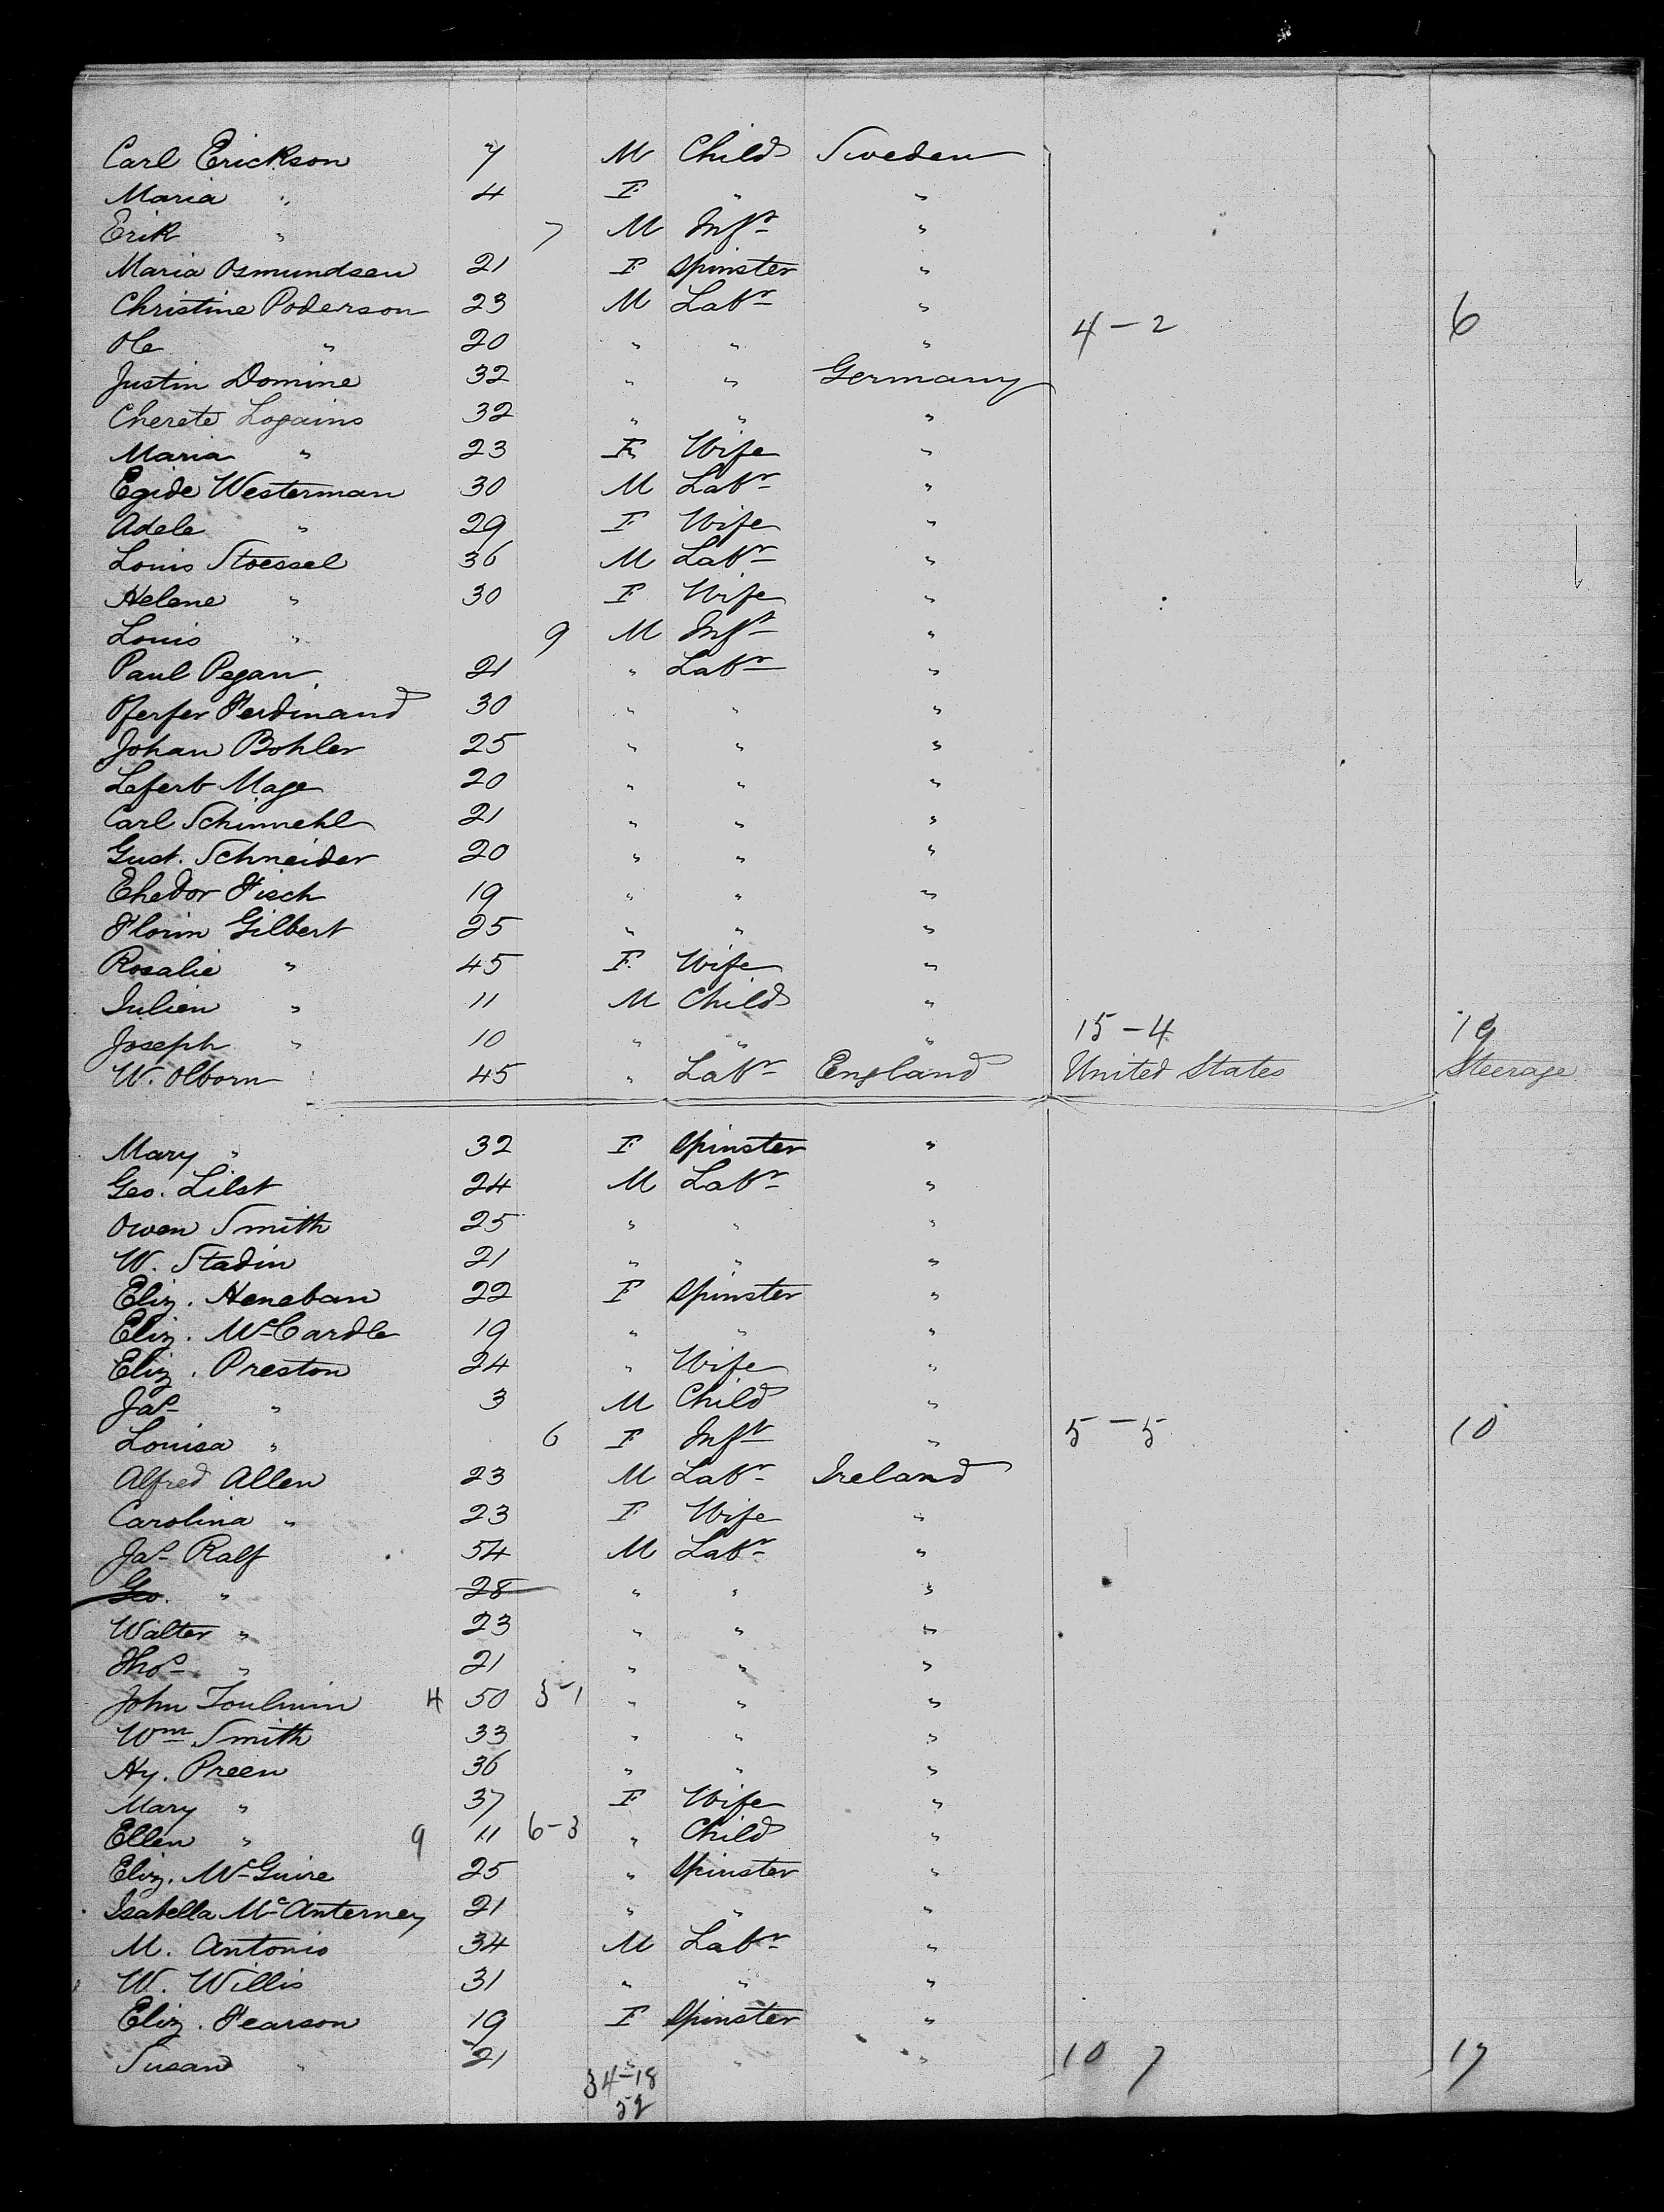 Carl Erickson 7 M Child Sweden
Maria " 4 F " "
Erik " 7 M Inft "
Maria Osmundsen 21 F Spinster "
Christine Poderson 23 M Labr "
Ole " 20 " " " 4-2 6
Justin Domine 32 " " Germany
Cherete Logains 32 " " "
Maria " 23 F Wife "
Egide Westerman 30 M Labr "
Adele " 29 F Wife "
Louis Stoessel 36 M Labr "
Helene " 30 F Wife "
Louis " 9 M Inft "
Paul Pegan 21 " Labr "
Pferfer Ferdinand 30 " " "
Johan Bohler 25 " " "
Lefert Mage 20 " " "
Carl Schinnehl 21 " " "
Gust. Schneider 20 " " "
Ehedor Fisch 19 " " "
Florin Gilbert 25 " " "
Rosalie " 45 F Wife "
Julien " 11 M Child "
Joseph " 10 " " " 15-4 19
W. Olborn 45 " Labr England United States Steerage
Mary " 32 F Spinster "
Geo. Lilst 24 M Labr "
Owen Smith 25 " " "
W. Stadin 21 " " "
Eliz. Heneban 22 F Spinster "
Eliz. McCardle 19 " " "
Eliz. Preston 24 " Wife "
Jas " 3 M Child "
Louisa " 6 F Inft " 5-5 10
Alfred Allen 23 M Labr Ireland
Carolina " 23 F Wife "
Jas Ralf 54 M Labr "
Geo. " 28 " " "
Walter " 23 " " "
Thos " 21 " " "
John Toulmin 4 50 3-1 " " "
Wm Smith 33 " " "
Hy. Preen 36 " " "
Mary " 37 F Wife "
Ellen " 9 11 6-3 " Child "
Eliz. McGuire 25 " Spinster "
Isabella McAnterney 21 " " "
M. Antonio 34 M Labr "
W. Willis 31 " " "
Eliz. Fearson 19 F Spinster "
Susan " 21 " " " 10 7 17
34-18
52